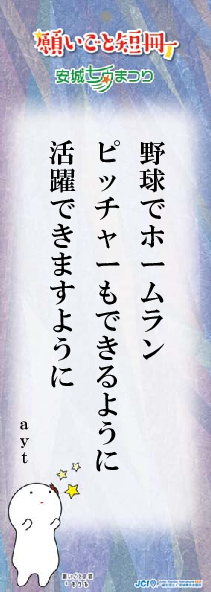 願いごと短冊
安城七夕まつり
野球でホームラン
ピッチャーもできるように
活躍できますように
ayt
JCI